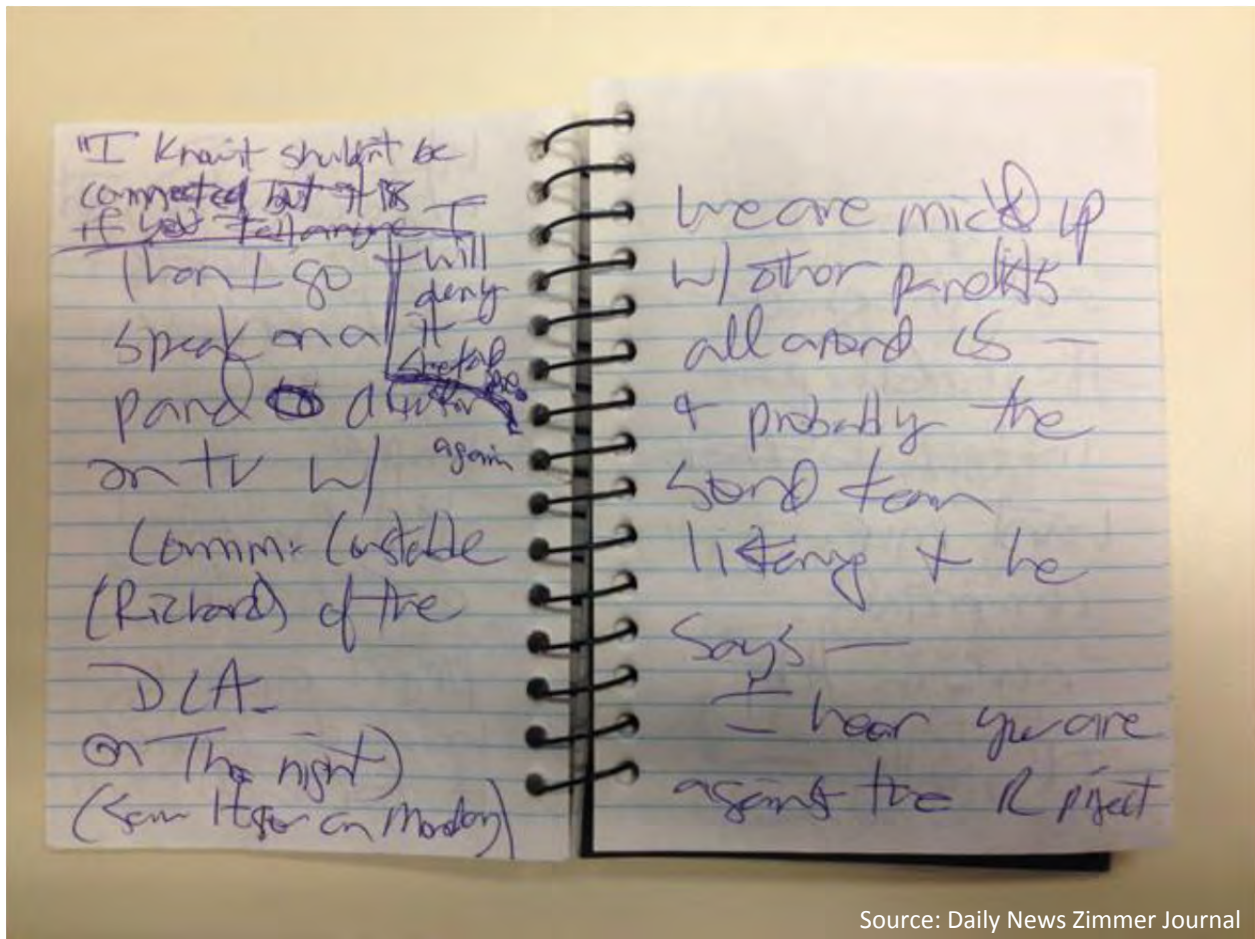 "I know it shuldn't be
connected but it is
if you tell anyone I
will
deny
it
Then I go
speak on a
panel
on TV w/
again
Comm. Constable
(Richard) of the
DCA
on Th night)
on Monday)
we are mic'd up
w/ other panelists
all around us —
+ probably the
sound team
listeng + he
says —
I hear you are
against the R project
Source: Daily News Zimmer Journal